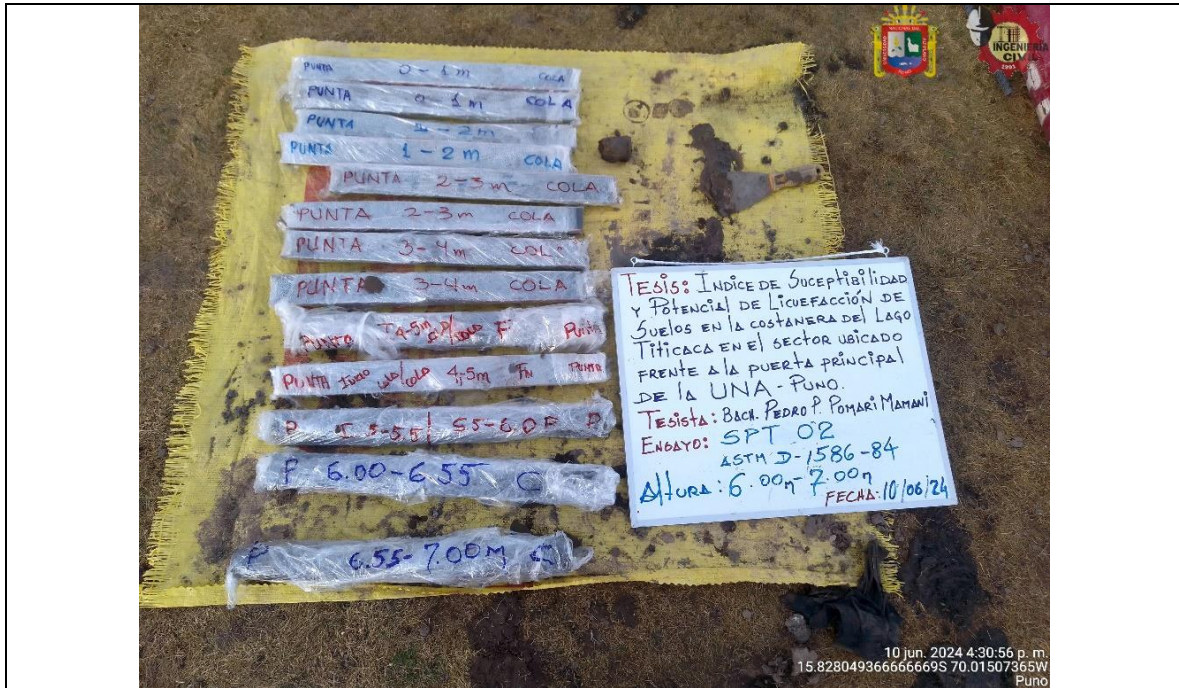 INGENIERÍA
CIVIL
PUNTA 0-1m COLA
PUNTA 0-1m COLA
PUNTA 1-2m
PUNTA 1-2m COLA
PUNTA 2-3m COLA
PUNTA 2-3m COLA
PUNTA 3-4m COL
PUNTA 3-4m COLA
PUNTA 4-5m F PUNTA
PUNTA INICIO COLA/COLA 4,5m FIN PUNTA
P I 5-5.5 5.5-6.0 F P
P 6.00-6.55 C
P 6.55-7.00M C
TESIS: ÍNDICE DE SUCEPTIBILIDAD
Y POTENCIAL DE LICUEFACCIÓN DE
SUELOS EN LA COSTANERA DEL LAGO
TITICACA EN EL SECTOR UBICADO
FRENTE A LA PUERTA PRINCIPAL
DE LA UNA - PUNO.
TESISTA: BACH. PEDRO P. POMARI MAMANI
ENSAYO: SPT 02
ASTM D-1586-84
AltURA: 6.00m-7.00m
FECHA: 10/06/24
10 jun. 2024 4:30:56 p. m.
15.828049366666669S 70.01507365W
Puno